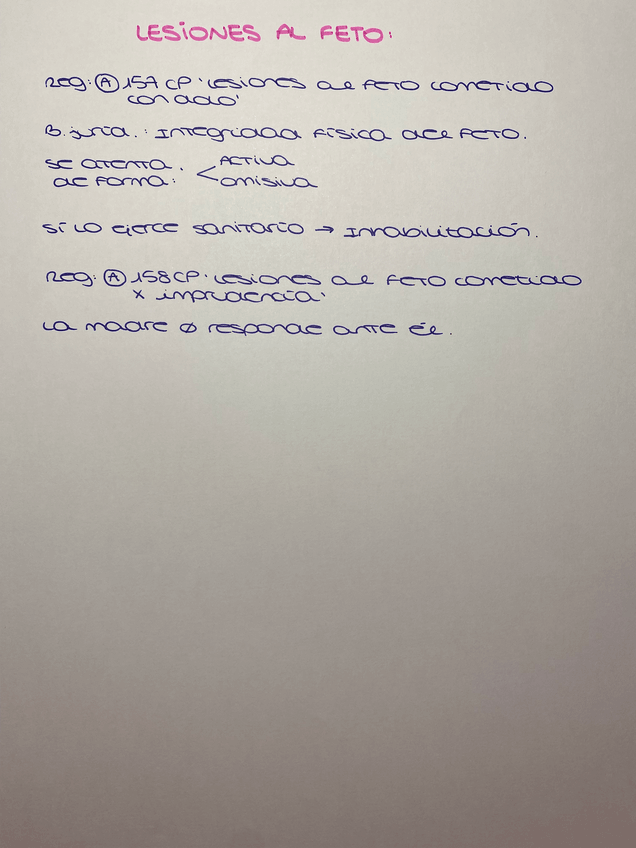 LESIONES AL FETO:
Reg: Ⓐ 157 CP 'Lesiones al FETO cometido
con dolo'
B. juríd. : Integridad Física del FETO.
Se atenta . < ACTIVA
de forma: omisiva
Si lo ejerce sanitario → Inhabilitación.
Reg: Ⓐ 158 CP 'Lesiones al FETO cometido
x imprudencia'
La madre ø responde ante él.